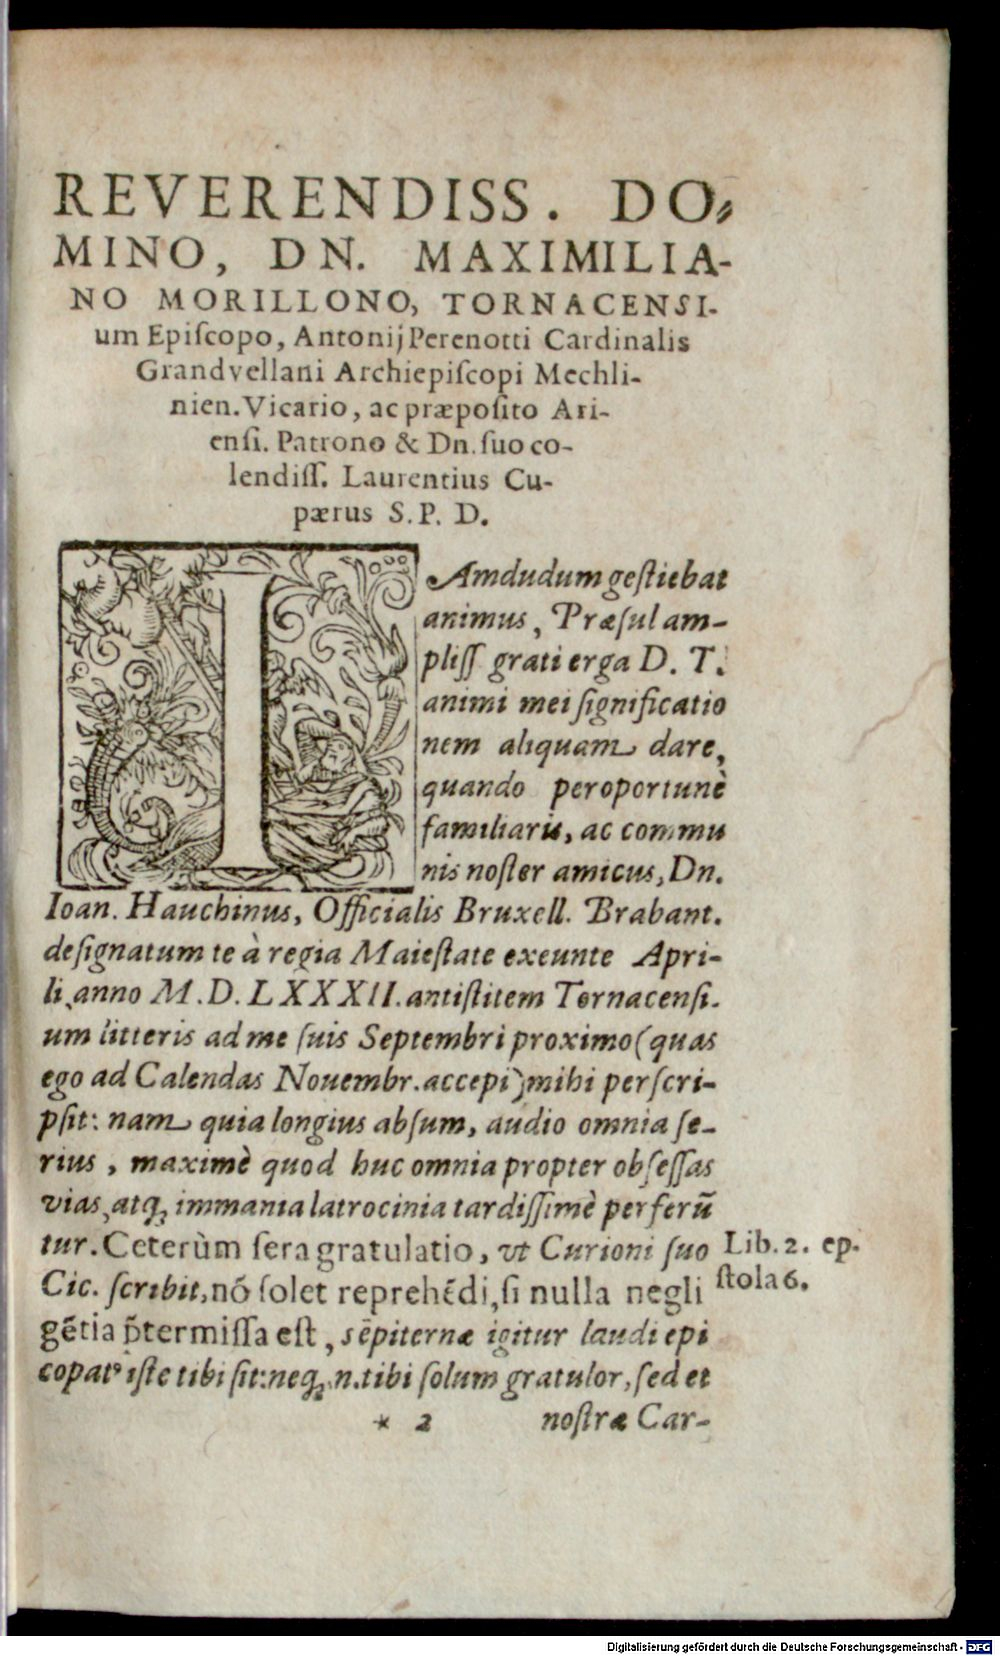 REVERENDISS. DO-
MINO, DN. MAXIMILIA-
NO MORILLONO, TORNACENSI-
um Epiſcopo, Antonij Perenotti Cardinalis
Grandvellani Archiepiſcopi Mechli-
nien. Vicario, ac præpoſito Ari-
enſi. Patrono & Dn. ſuo co-
lendiſſ. Laurentius Cu-
pærus S. P. D.
IAmdudum geſtiebat
animus, Præſul am-
pliſſ grati erga D. T.
animi mei ſignificatio
nem aliquam dare,
quando peroportunè
familiaris, ac commu
nis noſter amicus, Dn.
Ioan. Hauchinus, Officialis Bruxell. Brabant.
deſignatum te à regia Maieſtate exeunte Apri-
li, anno M. D. LXXXII. antiſtitem Tornacenſi-
um litteris ad me ſuis Septembri proximo (quas
ego ad Calendas Nouembr. accepi) mihi perſcri-
pſit: nam quia longius abſum, audio omnia ſe-
rius, maximè quod huc omnia propter obſeſſas
vias, atq; immania latrocinia tardiſſimè perferū
tur. Ceterùm ſera gratulatio, vt Curioni ſuo
Cic. ſcribit, nō ſolet reprehēdi, ſi nulla negli
gētia p̄termiſſa eſt, sēpiternæ igitur laudi epi
copatꝰ iſte tibi ſit: neq; .n. tibi ſolum gratulor, ſed et
* 2 noſtræ Car-
Lib. 2. ep.
ſtola 6.
Digitalisierung gefördert durch die Deutsche Forschungsgemeinschaft - DFG